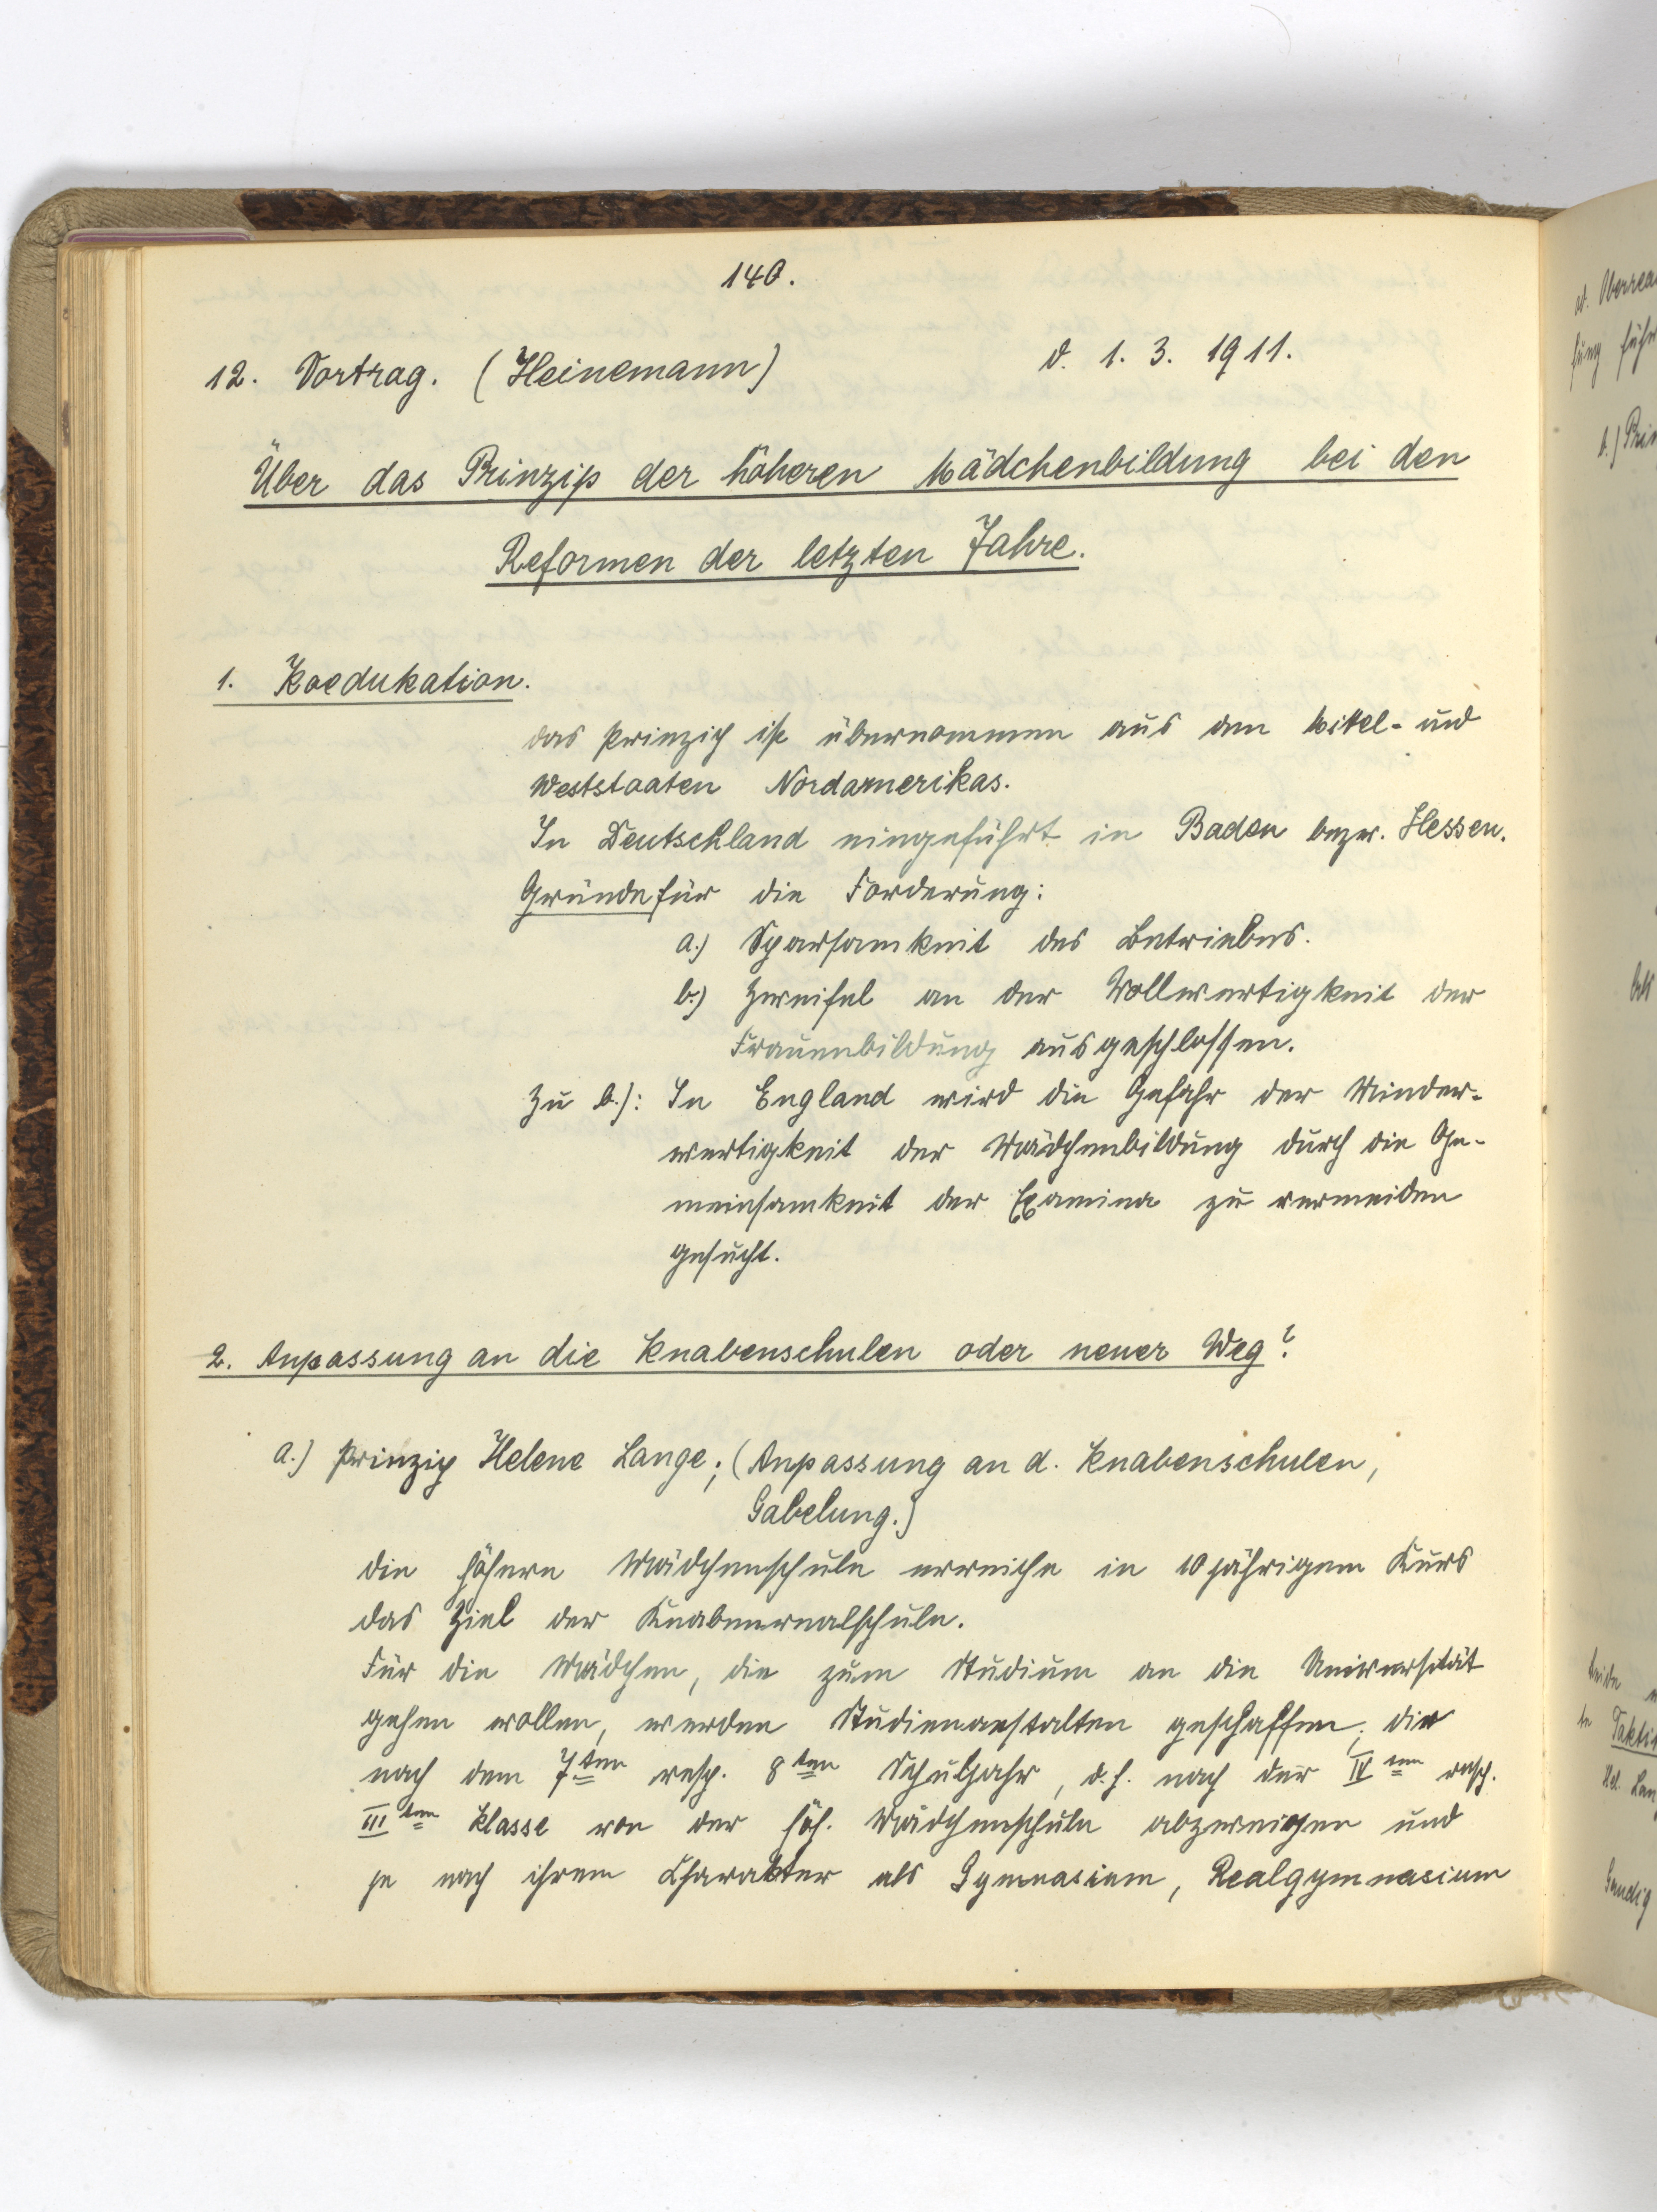 140.
12. Vortrag. (Heinemann) d. 1. 3. 1911.
Über das Prinzip der höheren Mädchenbildung bei den
Reformen der letzten Jahre.
1. Koedukation.
das Prinzip ist übernommen aus den Mittel- und
Weststaaten Nordamerikas.
In Deutschland eingeführt in Baden bezw. Hessen.
Gründe für die Forderung:
a.) Sparsamkeit des Betriebes.
b.) Zweifel an der Vollwertigkeit der
Frauenbildung ausgeschlossen.
Zu b.): In England wird die Gefahr der Minder-
wertigkeit der Mädchenbildung durch die Ge-
meinsamkeit der Examina zu vermeiden
gesucht.
2. Anpassung an die Knabenschulen oder neuer Weg?
a.) Prinzip Helene Lange; (Anpassung an d. Knabenschulen,
Gabelung.)
die höhere Mädchenschule erreiche in 10 jährigem Kurs
das Ziel der Knabenrealschule.
Für die Mädchen, die zum Studium an die Universität
gehen wollen, werden Studienanstalten geschaffen, die
nach dem 7ten resp. 8ten Schuljahr, d. h. nach der IVten resp.
IIIten Klasse von der höh. Mädchenschule abzweigen und
je nach ihrem Charakter als Gymnasium, Realgymnasium
od. Oberrea
führ
b.) Prin
beide
Hel. Lan
Gaudig